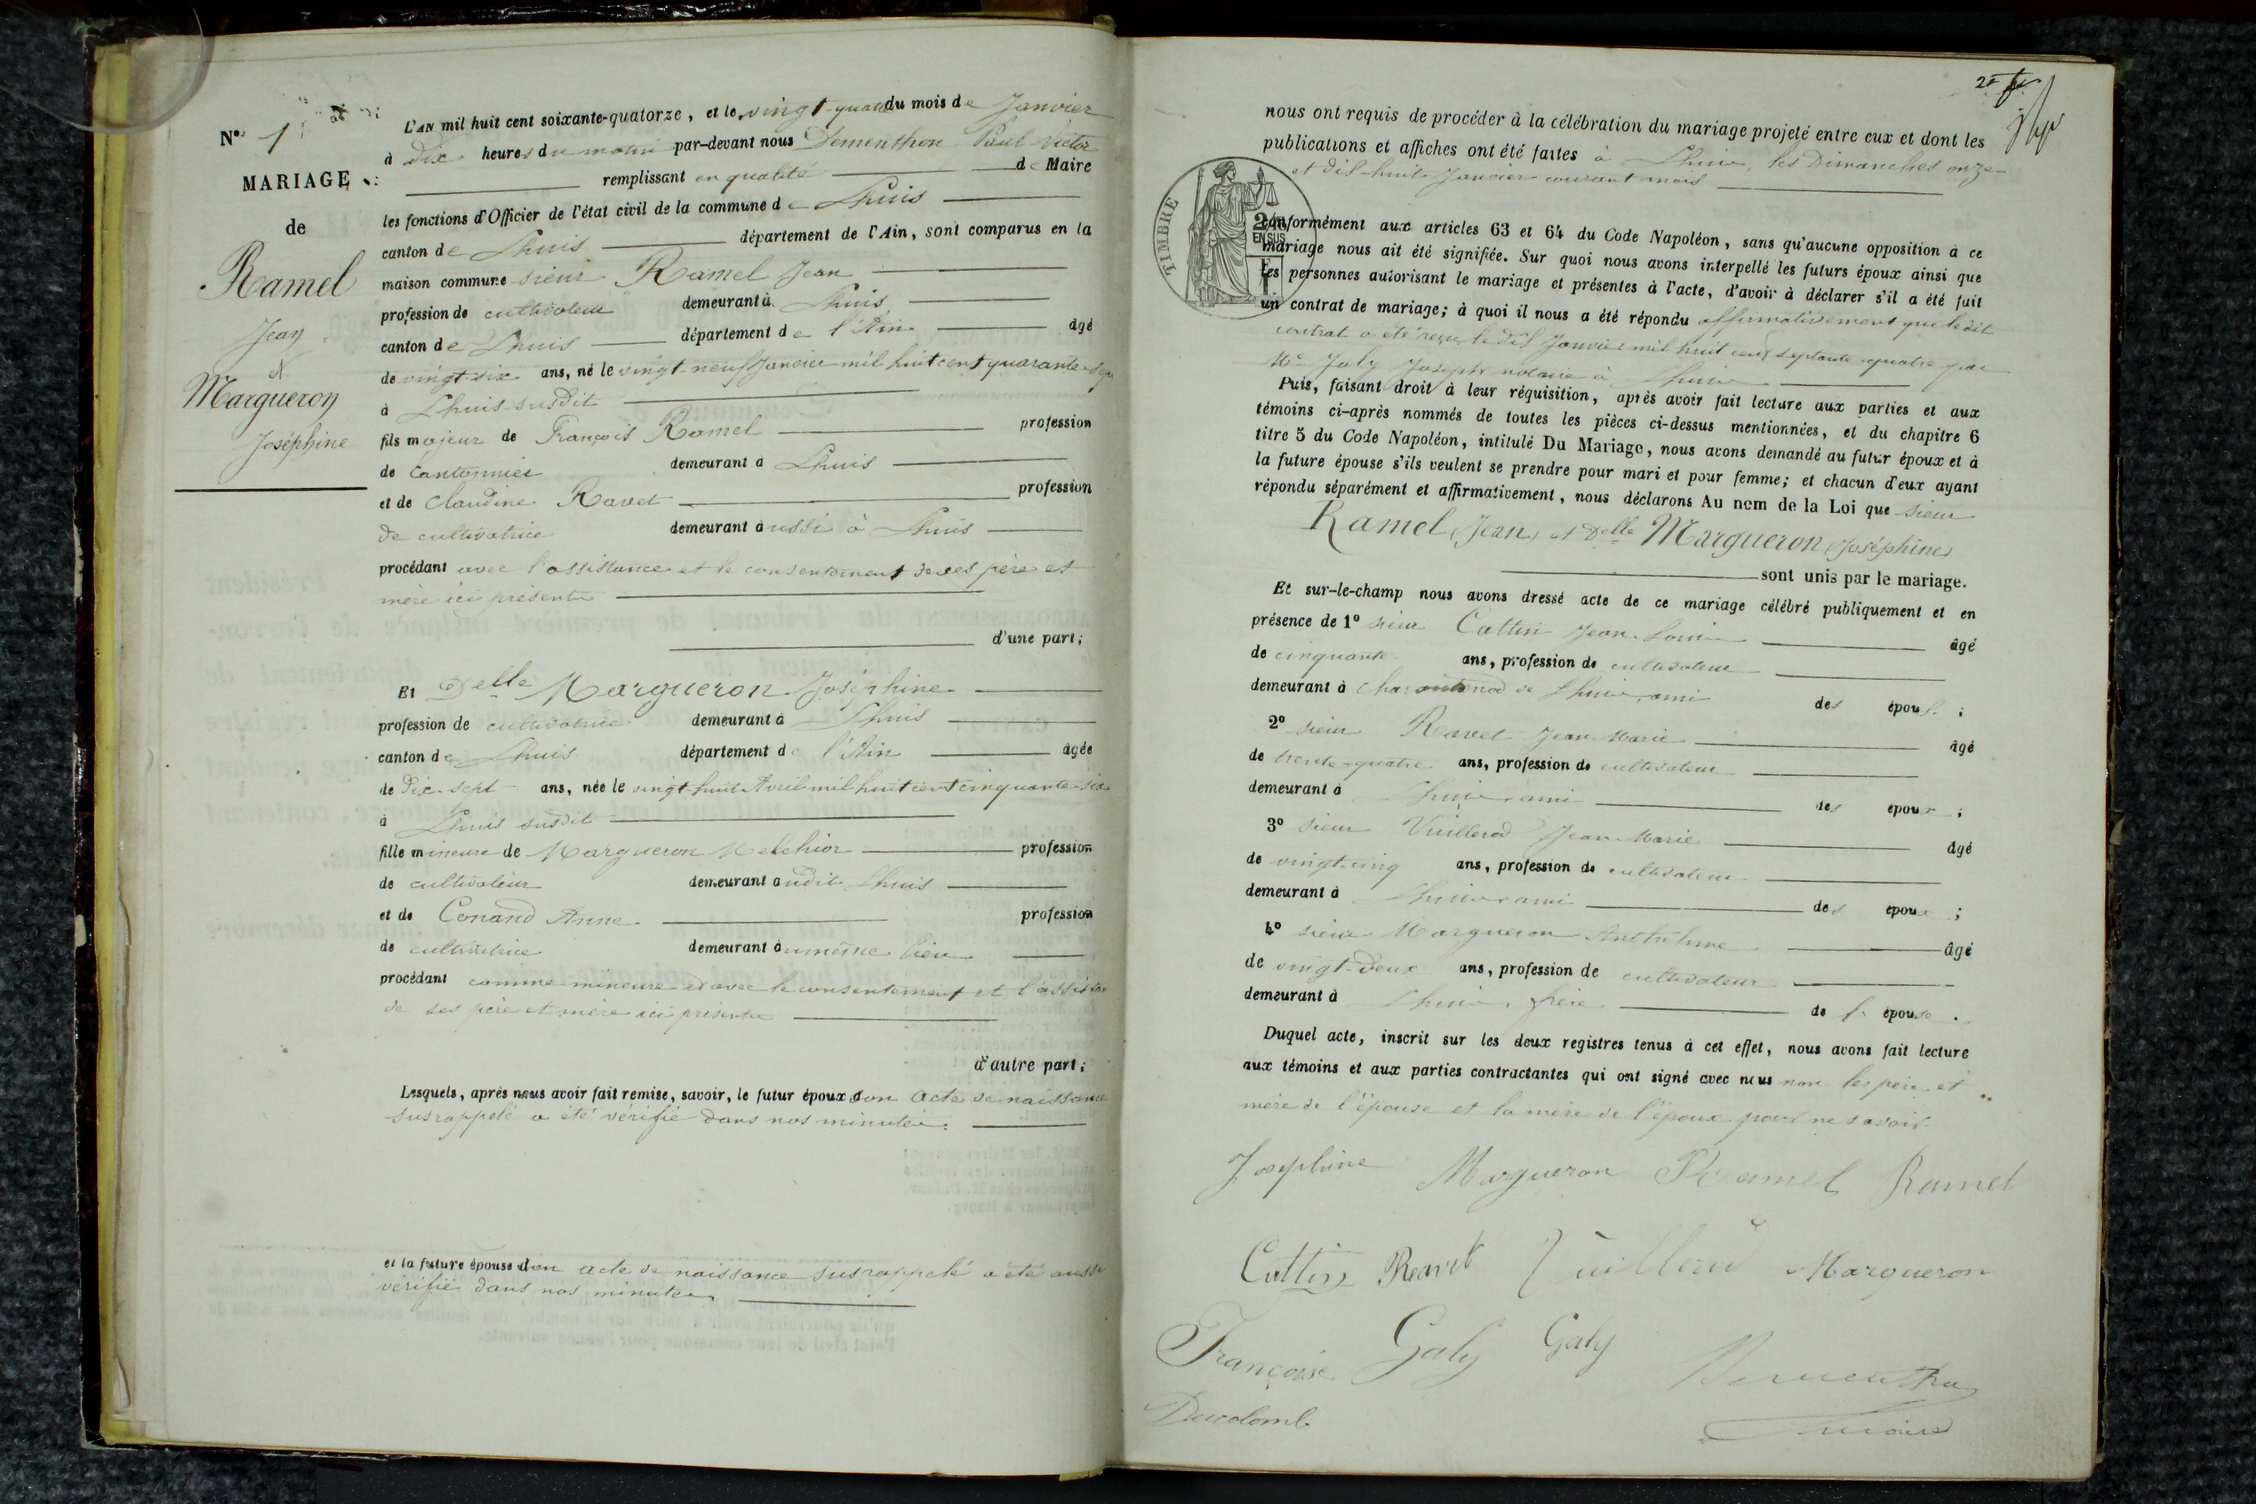 N° 1
MARIAGE
de
Ramel
Jean
et
Margueron
Joséphine
L'AN mil huit cent soixante-quatorze, et le vingt-quatre du mois de Janvier
à Dix heures du matin par-devant nous Dementhon Paul Victor
remplissant en qualité de Maire
les fonctions d'Officier de l'état civil de la commune de Lhuis
canton de Lhuis département de l'Ain, sont comparus en la
maison commune sieur Ramel Jean
profession de cultivateur demeurant à Lhuis
canton de Lhuis département de l'Ain âgé
de vingt-six ans, né le vingt neuf Janvier mil huit cent quarante-sept
à Lhuis susdit
fils majeur de François Ramel profession
de Cantonnier demeurant à Lhuis
et de Claudine Ravet profession
de cultivatrice demeurant aussi à Lhuis
procédant avec l'assistance et le consentement de ses père et
mère ici présents
d'une part;
Et Delle Margueron Joséphine
profession de cultivatrice demeurant à Lhuis
canton de Lhuis département de l'Ain âgée
de Dix-sept ans, née le vingt-huit Avril mil huit cent cinquante-six
à Lhuis susdit
fille mineure de Margueron Melchior profession
de cultivateur demeurant audit Lhuis
et de Conand Anne profession
de cultivatrice demeurant au même lieu
procédant comme mineure et avec le consentement et l'assistance
de ses père et mère ici présents
d'autre part;
Lesquels, après nous avoir fait remise, savoir, le futur époux son acte de naissance
susrappelé a été vérifié dans nos minutes.
et la future épouse son acte de naissance susrappelé a été aussi
vérifié dans nos minutes
2e
nous ont requis de procéder à la célébration du mariage projeté entre eux et dont les
publications et affiches ont été faites à Lhuis, les Dimanches onze
et dix-huit Janvier courant mois
TIMBRE
2/10
EN SUS
conformément aux articles 63 et 64 du Code Napoléon, sans qu'aucune opposition à ce
mariage nous ait été signifiée. Sur quoi nous avons interpellé les futurs époux ainsi que
les personnes autorisant le mariage et présentes à l'acte, d'avoir à déclarer s'il a été fait
un contrat de mariage; à quoi il nous a été répondu affirmativement que ledit
contrat a été reçu le dix Janvier mil huit cent septante quatre par
Me Joly Joseph notaire à Lhuis
Puis, faisant droit à leur réquisition, après avoir fait lecture aux parties et aux
témoins ci-après nommés de toutes les pièces ci-dessus mentionnées, et du chapitre 6
titre 5 du Code Napoléon, intitulé Du Mariage, nous avons demandé au futur époux et à
la future épouse s'ils veulent se prendre pour mari et pour femme; et chacun d'eux ayant
répondu séparément et affirmativement, nous déclarons Au nom de la Loi que sieur
Ramel (Jean) et Delle Margueron (Joséphine)
sont unis par le mariage.
Et sur-le-champ nous avons dressé acte de ce mariage célébré publiquement et en
présence de 1° sieur Cattin Jean-Louis âgé
de cinquante ans, profession de cultivateur
demeurant à de Lhuis, ami des époux;
2° sieur Ravet Jean-Marie âgé
de trente-quatre ans, profession de cultivateur
demeurant à Lhuis, ami des époux;
3° sieur Vuillerod Jean-Marie âgé
de vingt-cinq ans, profession de cultivateur
demeurant à Lhuis, ami des époux;
4° sieur Margueron Anthelme âgé
de vingt-deux ans, profession de cultivateur
demeurant à Lhuis, frère de l'épouse.
Duquel acte, inscrit sur les deux registres tenus à cet effet, nous avons fait lecture
aux témoins et aux parties contractantes qui ont signé avec nous non les père et
mère de l'épouse et la mère de l'époux pour ne savoir.
Josephine Margueron Ramel Ramel
Cattin Ravet Vuillerod Margueron
Françoise Galy Galy Dementhon
Ducolomb maire